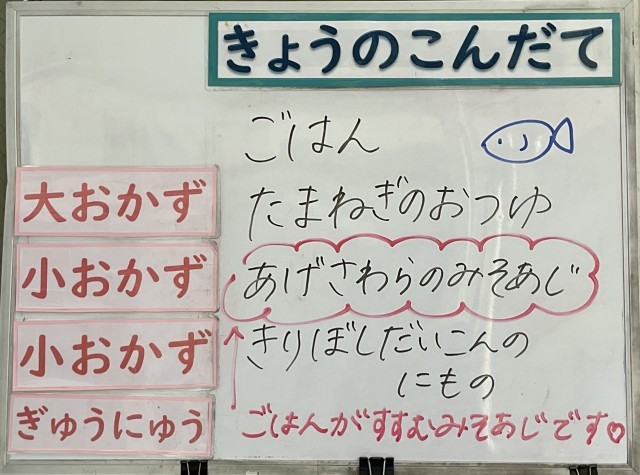 きょうのこんだて
ごはん
大おかず
たまねぎのおつゆ
小おかず
あげさわらのみそあじ
小おかず
きりぼしだいこんの
にもの
ぎゅうにゅう
ごはんがすすむみそあじです♡